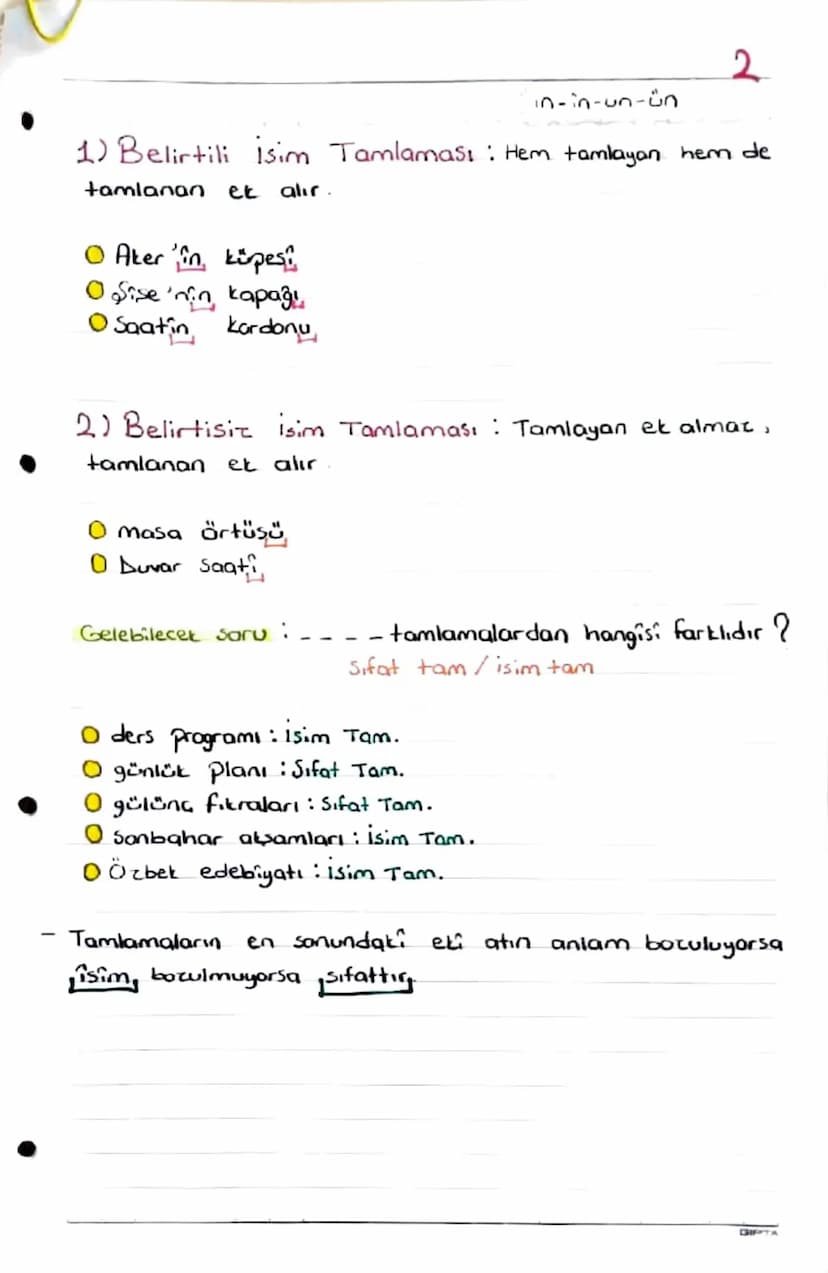 2
ın-in-un-ün
1) Belirtili isim Tamlaması : Hem tamlayan hem de
tamlanan ek alır.
Aker'in küpesi
Şişe'nin kapağı
Saatin kordonu
2) Belirtisiz isim Tamlaması : Tamlayan ek almaz,
tamlanan ek alır.
masa örtüsü
Duvar saati
Gelebilecek soru : - - - - tamlamalardan hangisi farklıdır ?
Sıfat tam / isim tam
ders programı : İsim Tam.
günlük planı : Sıfat Tam.
gülünç fıkraları : Sıfat Tam.
Sonbahar akşamları : İsim Tam.
Özbek edebiyatı : İsim Tam.
- Tamlamaların en sonundaki eki atın anlam bozuluyorsa
isim, bozulmuyorsa sıfattır.
GIPTA